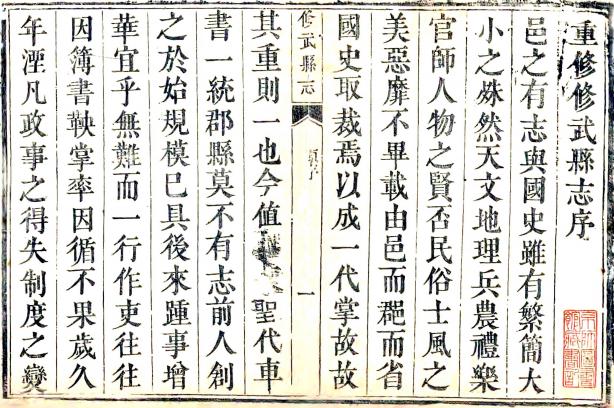 重修修武縣志序
邑之有志與國史雖有繁簡大
小之殊然天文地理兵農禮樂
官師人物之賢否民俗士風之
美惡靡不畢載由邑而郡而省
國史取裁焉以成一代掌故故
修武縣志
序
一
其重則一也今值
聖代車
書一統郡縣莫不有志前人創
之於始規模已具後來踵事增
華宜乎無難而一行作吏往往
因簿書鞅掌率因循不果歲久
年湮凡政事之得失制度之變